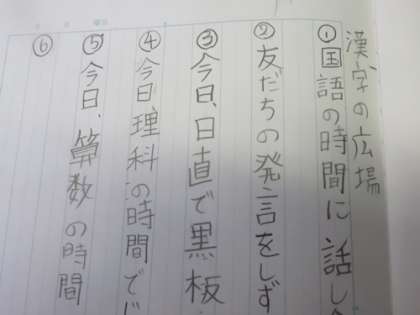 漢字の広場
①国語の時間に話し
②友だちの発言をしず
③今日、日直で黒板
④今日、理科の時間で
⑤今日、算数の時間
⑥